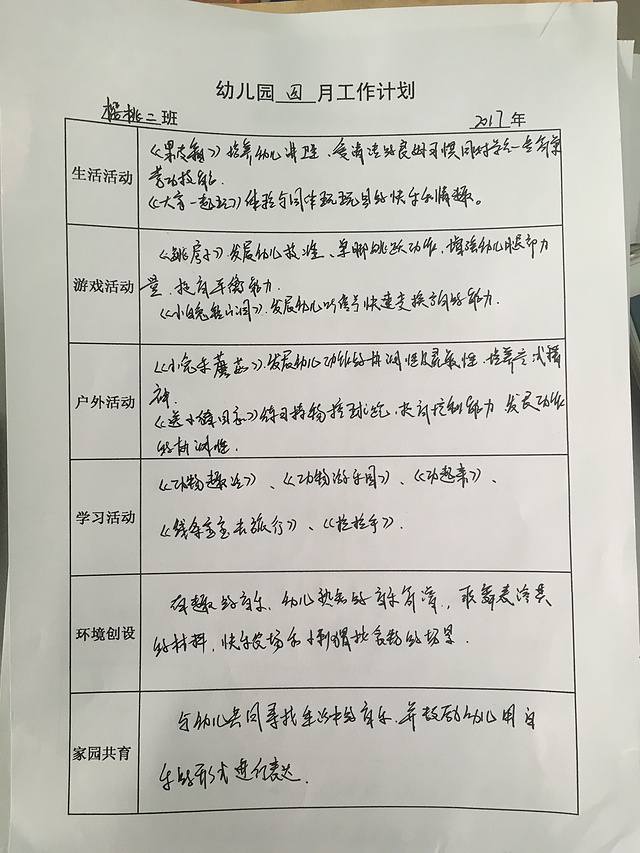 幼儿园 四 月工作计划
樱桃二班 2017年
生活活动
《果皮箱》培养幼儿讲卫生、爱清洁的良好习惯同时学会一些简单
劳动技能.
《大家一起玩》体验与同伴玩玩具的快乐和情趣。
游戏活动
《跳房子》.发展幼儿投准、单脚跳跃动作.增强幼儿腿部力
量.提高平衡能力.
《小兔钻山洞》.发展幼儿听信号快速变换方向的能力.
户外活动
《小兔采蘑菇》.发展幼儿动作的协调性及柔韧性.培养
《送小猪回家》练习持物控球跑.提高控制能力 发展动作
的协调性.
学习活动
《动物趣谈》、《动物游乐园》、《动起来》、
《线条宝宝去旅行》、《拉拉手》.
环境创设
有趣的音乐、幼儿熟知的音乐,歌舞表演类
的材料,快乐农场和小刺猬扮演的场景.
家园共育
与幼儿共同寻找生活中的音乐.并鼓励幼儿用音
乐的形式进行表达.